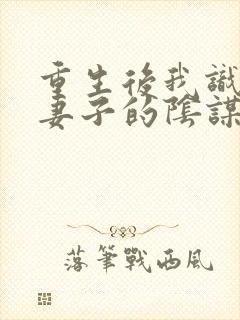 重生後我識
妻子的陰謀
落筆戰西風